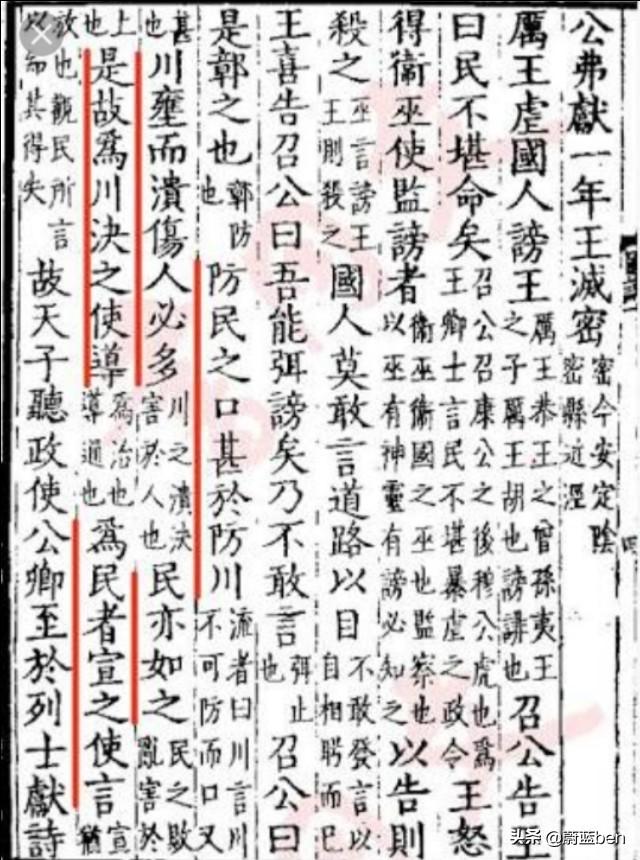 公弗獻一年王滅密密今安定陰密縣近涇
厲王虐國人謗王厲王恭王之曾孫夷王之子厲王胡也謗誹也召公告王
曰民不堪命矣召公召康公之後穆公虎也爲王卿士言民不堪暴虐之政令王怒
得衞巫使監謗者衞巫衞國之巫也監察也以巫有神靈有謗必知之以告則
殺之巫言謗王王則殺之國人莫敢言道路以目不敢發言以目相眄而已
王喜告召公曰吾能弭謗矣乃不敢言弭止也召公曰
是鄣之也鄣防也防民之口甚於防川流者曰川言川不可防而口又
甚也川壅而潰傷人必多川之潰決害於人也民亦如之民之敗亂害於
上也是故爲川決之使導爲治也導通也爲民者宣之使言宣猶
放也觀民所言以知其得失故天子聽政使公卿至於列士獻詩
头条 @蔚蓝ben